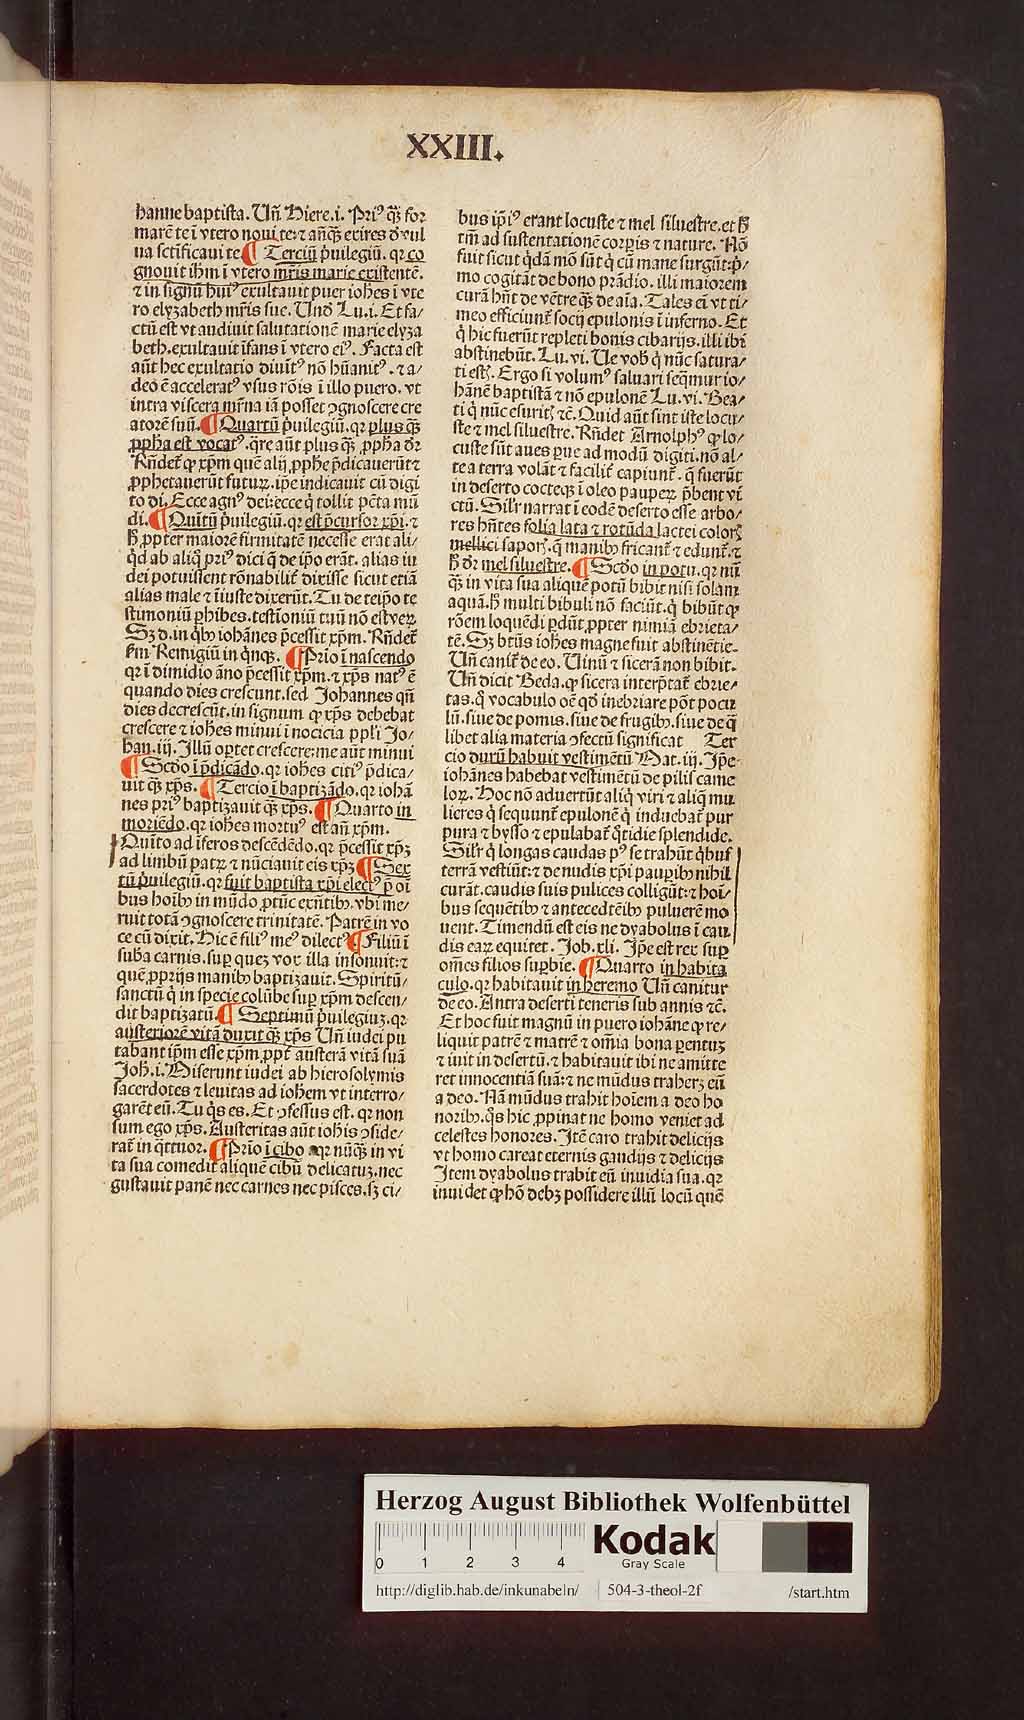 XXIII.
hanne baptista. Vn̄. Hiere. i. Priꝰ qȝ̄ for
marē te ī vtero noui te: ⁊ an̄qȝ̄ exires d̕ vul
ua sctificaui te ¶ Terciū p̄uilegiū. qꝛ co
gnouit ih̄m ī vtero mr̄is marie existentē.
⁊ in signū huiꝰ exultauit puer ioh̄es ī vte
ro elyzabeth mr̄is sue. Vnd̕ Lu. i. Et fa/
ctū est vt audiuit salutationē marie elyza
beth. exultauit īfans ī vtero eiꝰ. Facta est
aūt hec exultatio diuītꝰ nō hūanitꝰ. ⁊ a/
deo ē acceleratꝰ vsus rōis ī illo puero. vt
intra viscera mr̄na iā posset ꝯgnoscere cre
atorē suū. ¶ Quartū p̄uilegiū. qꝛ plus qȝ̄
ꝓpha est vocatꝰ. q̄re aūt plus qȝ̄ ꝓpha d̕r
Rn̄det̕ ꝙ xp̄m quē alij ꝓphe p̄dicauerūt ⁊
ꝓphetauerūt futuꝝ. ip̄e indicauit cū digi
to di. Ecce agnꝰ dei: ecce q̇ tollit pctā mū
di. ¶ Quītū p̄uilegiū. qꝛ est p̄cursor xp̄i. ⁊
ħ ꝓpter maiorē firmitatē necesse erat ali/
q̇d ab aliq̇ priꝰ dici q̄ de ip̄o erāt. alias iu
dei potuissent rōnabilit̕ dixisse sicut etiā
alias male ⁊ iīuste dixerūt. Tu de teip̄o te
stimoniū ꝑhibes. testioniū tuū nō est veꝝ
Sȝ d. in q̇bꝰ iohānes p̄cessit xp̄m. Rn̄det̕
ẜm Remigiū in q̇nqȝ. ¶ Prīo ī nascendo
qꝛ ī dimidio āno p̄cessit xp̄m. ⁊ xp̄s natꝰ ē
quando dies crescunt. sed Johannes qn̄
dies decrescūt. in signum ꝙ xp̄s debebat
crescere ⁊ ioh̄es minui ī nocicia pp̄li Jo/
han. iij. Illū optet crescere: me aūt minui
¶ Scd̕o ī p̄dicādo. qꝛ ioh̄es citiꝰ p̄dica/
uit qȝ̄ xp̄s. ¶ Tercio ī baptizādo. qꝛ iohā
nes priꝰ baptizauit qȝ̄ xp̄s. ¶ Quarto in
moriēdo. qꝛ ioh̄es mortuꝰ est an̄ xp̄m.
Quīto ad īferos descēdēdo. qꝛ p̄cessit xp̄ȝ
ad limbū patꝝ ⁊ nūciauit eis xp̄ȝ ¶ Sex
tū p̄uilegiū. qꝛ fuit baptista xp̄i electꝰ p̄ oī
bus hoībꝰ in mūdo ꝓtūc exn̄tibꝰ. vbi me/
ruit totā ꝯgnoscere trinitatē. Patrē in vo
ce cū dixit. Hic ē filiꝰ meꝰ dilectꝰ ¶ Filiū ī
suba carnis. suꝑ quez vox illa insonuit: ⁊
quē ꝓprijs manibꝰ baptizauit. Spiritū/
sanctū q̇ in specie colūbe suꝑ xp̄m descen/
dit baptizatū. ¶ Septimū p̄uilegiuȝ. qꝛ
austeriorē vitā duxit qȝ̄ xp̄s Vn̄ iudei pu
tabant ip̄m esse xp̄m. ꝓpt̕ austerā vitā suā
Joh̄. i. Miserunt iudei ab hierosolymis
sacerdotes ⁊ leuitas ad ioh̄em vt interro/
garēt eū. Tu q̇s es. Et ꝯfessus est. qꝛ non
sum ego xp̄s. Austeritas aūt ioh̄is ꝯside/
rat̕ in q̄ttuor. ¶ Prīo ī cibo qꝛ nūqȝ̄ in vi
ta sua comedit aliquē cibū delicatuȝ. nec
gustauit panē nec carnes nec pisces. sȝ ci/
bus ip̄iꝰ erant locuste ⁊ mel siluestre. et ħ
tm̄ ad sustentationē corꝑis ⁊ nature. Nō
fuit sicut q̇dā mō sūt q̇ cū mane surgūt: p̄/
mo cogitāt de bono prādio. illi maiorem
curā hn̄t de vētre qȝ̄ de aīa. Tales em̄ vt ti/
meo efficiunt̕ socij epulonis ī inferno. Et
q̇ hic fuerūt repleti bonis cibarijs. illi ibī
abstinebūt. Lu. vi. Ve vob̄ q̇ nūc satura/
ti est̕. Ergo si volumꝰ saluari seq̄mur io/
hānē baptistā ⁊ nō epulonē Lu. vi. Bea/
ti q̇ nūc esurit̕ ⁊c̄. Quid aūt sint iste locu/
ste ⁊ mel siluestre. Rn̄det Arnolphꝰ ꝙ lo/
custe sūt aues ꝑue ad modū digiti. nō al/
te a terra volāt ⁊ facilit̕ capiunt̕. q̄ fuerūt
in deserto cocteqȝ ī oleo pauperꝝ p̄bent vi
ctū. Silr̕ narrat ī eodē deserto esse arbo/
res hn̄tes folia lata ⁊ rotūda lactei color̕
mellici sapor̕. q̄ manibꝰ fricant̕ ⁊ edunt̕. ⁊
ħ d̕r mel siluestre. ¶ Scd̕o in potu. qꝛ nū
qȝ̄ in vita sua aliquē potū bibit nisi solam
aquā. ħ multi bibuli nō faciūt. q̇ bibūt ꝙ
rōem loquēdi ꝑdūt ꝓpter nimiā ebrieta/
tē. Sȝ btūs ioh̄es magne fuit abstinētie.
Vn̄ canit̕ de eo. Vinū ⁊ sicerā non bibit.
Vn̄ dicit Beda. ꝙ sicera interp̄tat̕ ebrie/
tas. q̇ vocabulo oē qd̕ inebriare pōt pocu
lū. siue de pomis. siue de frugibꝰ. siue de q̄
libet alia materia ꝯfectū significat Ter
cio durū habuit vestimētū Mat. iij. Ip̄e
iohānes habebat vestimētū de pilis came
loꝝ. Hoc nō aduertūt aliq̇ viri ⁊ aliq̄ mu
lieres q̇ sequunt̕ epulonē q̇ induebat̕ pur
pura ⁊ bysso ⁊ epulabat̕ q̇tidie splendide.
Silr̕ q̇ longas caudas pꝰ se trahūt q̇bus
terrā vestiūt: ⁊ de nudis xp̄i pauꝑibꝰ nihil
curāt. caudis suis pulices colligūt: ⁊ hoī/
bus sequētibꝰ ⁊ antecedtēibꝰ puluerē mo
uent. Timendū est eis ne dyabolus ī cau
dis eaꝝ equitet. Job. xli. Ip̄e est rex suꝑ
om̄es filios suꝑbie. ¶ Quarto in habita
culo. qꝛ habitauit in heremo Vn̄ canitur
de eo. Antra deserti teneris sub annis ⁊c̄.
Et hoc fuit magnū in puero iohāne ꝙ re/
liquit patrē ⁊ matrē ⁊ om̄ia bona parentuȝ
⁊ iuit in desertū. ⁊ habitauit ibi ne amitte
ret innocentiā suā: ⁊ ne mūdus traherꝫ eū
a deo. Nā mūdus trahit hoīem a deo ho
noribꝰ. q̇s hic ꝓpinat ne homo veniet ad
celestes honores. Itē caro trahit delicijs
vt homo careat eternis gaudijs ⁊ delicijs
Item dyabolus trahit eū inuidia sua. qꝛ
inuidet ꝙ hō debȝ possidere illū locū quē
Herzog August Bibliothek Wolfenbüttel
0 1 2 3 4
Kodak
Gray Scale
http://diglib.hab.de/inkunabeln/ 504-3-theol-2f /start.htm